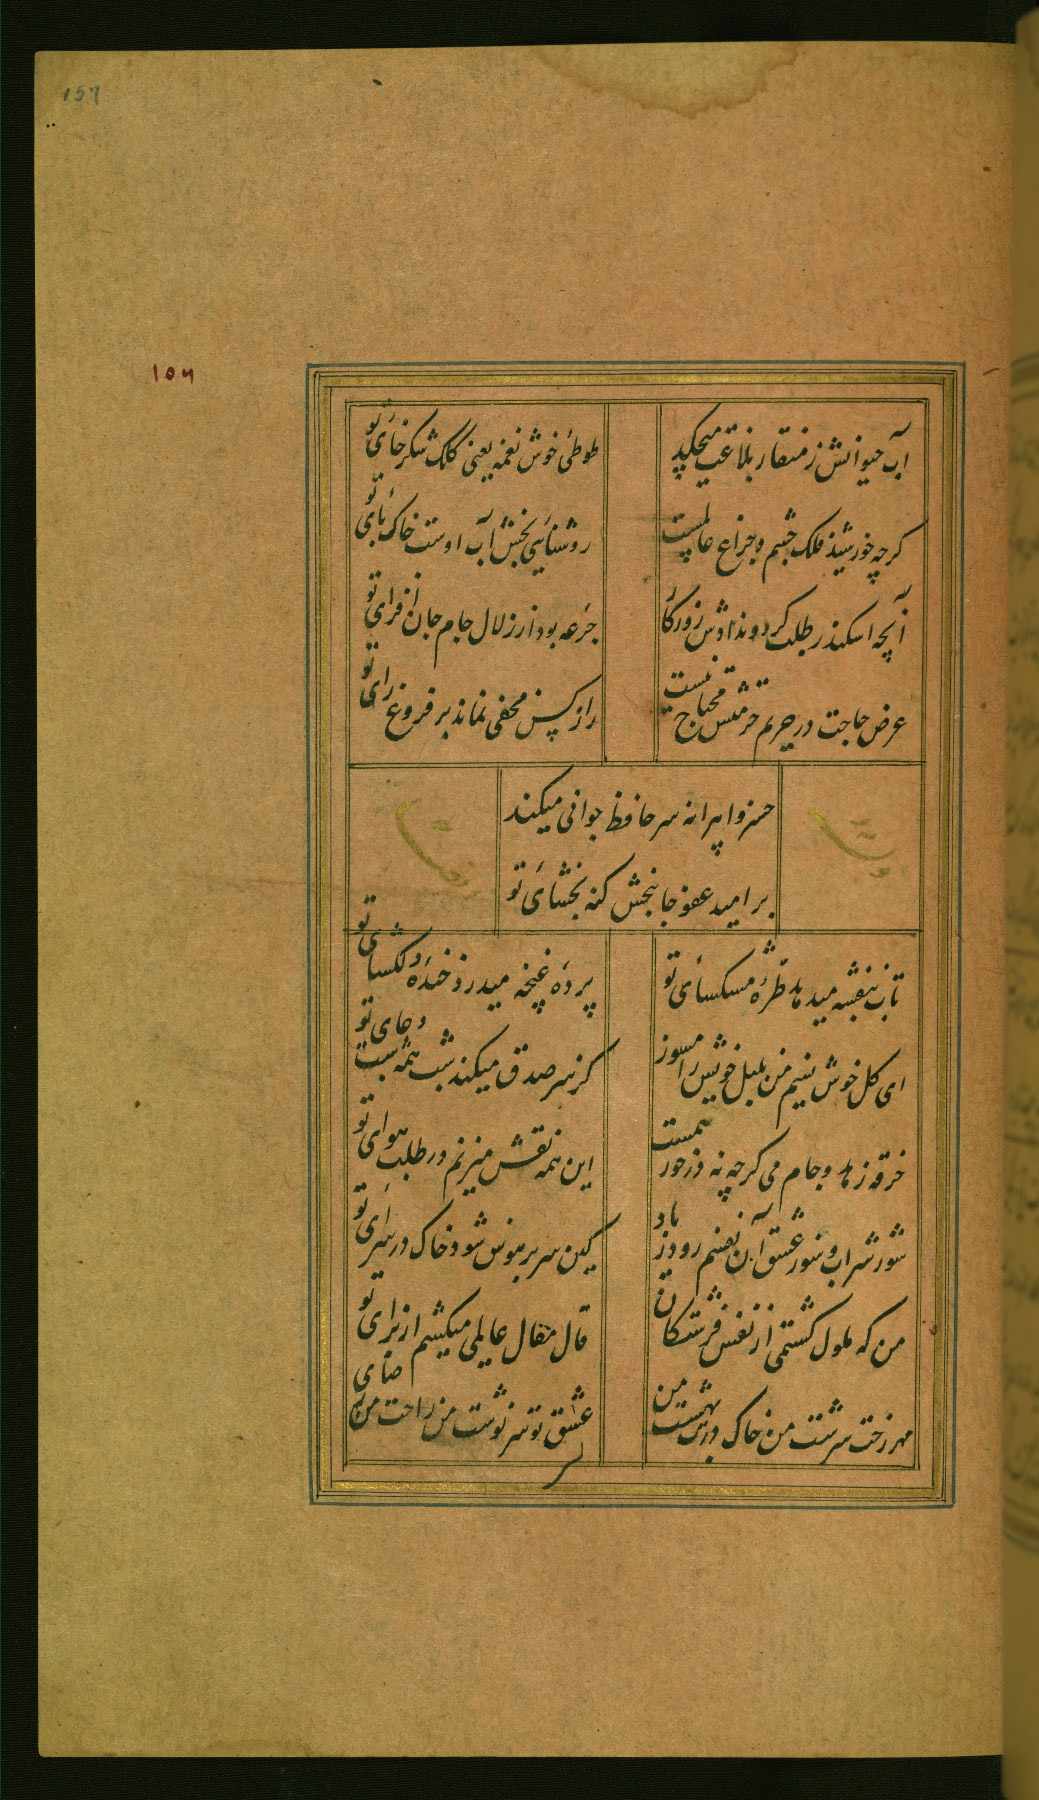 157
١٥٦
آب حیوانش ز منقار بلاغت میچکد طوطئ خوش نغمه یعنی کلک شکر خای تو
کرچه خورشید فلک چشم و چراغ عالمست روشنایی بخش آب اوست خاک پای تو
آنچه اسکندر طلب کرد و ندادش روزکار جرعه بود از زلال جام جان افزای تو
عرض حاجت در حریم حرمتش محتاج نیست راز کس مخفی نماند بر فروغ رای تو
خسروا پیرانه سر حافظ جوانی میکند
بر امید عفو جانبخش کنه بخشای تو
تاب بنفشه میدهد طرهٔ مسکسای تو پردهٔ غنچه میدرد خندهٔ دلکشای تو
ای کل خوش نسیم من بلبل خویش را مسوز کز سر صدق میکند شب همه شب دعای تو
خرقه زهد و جام می کرچه نه درخور همست این همه نقش میزنم در طلب هوای تو
شور شراب و سور عشق آن نفسم رود ز یاد کین سر پر هوس شود خاک در سرای تو
من که ملول کشتمی از نفس فرشتکان قال مقال عالمی میکشم از برای تو
مهر رخت سرشت من خاک درت بهشت من عشق تو سرنوشت من راحت من رضای تو